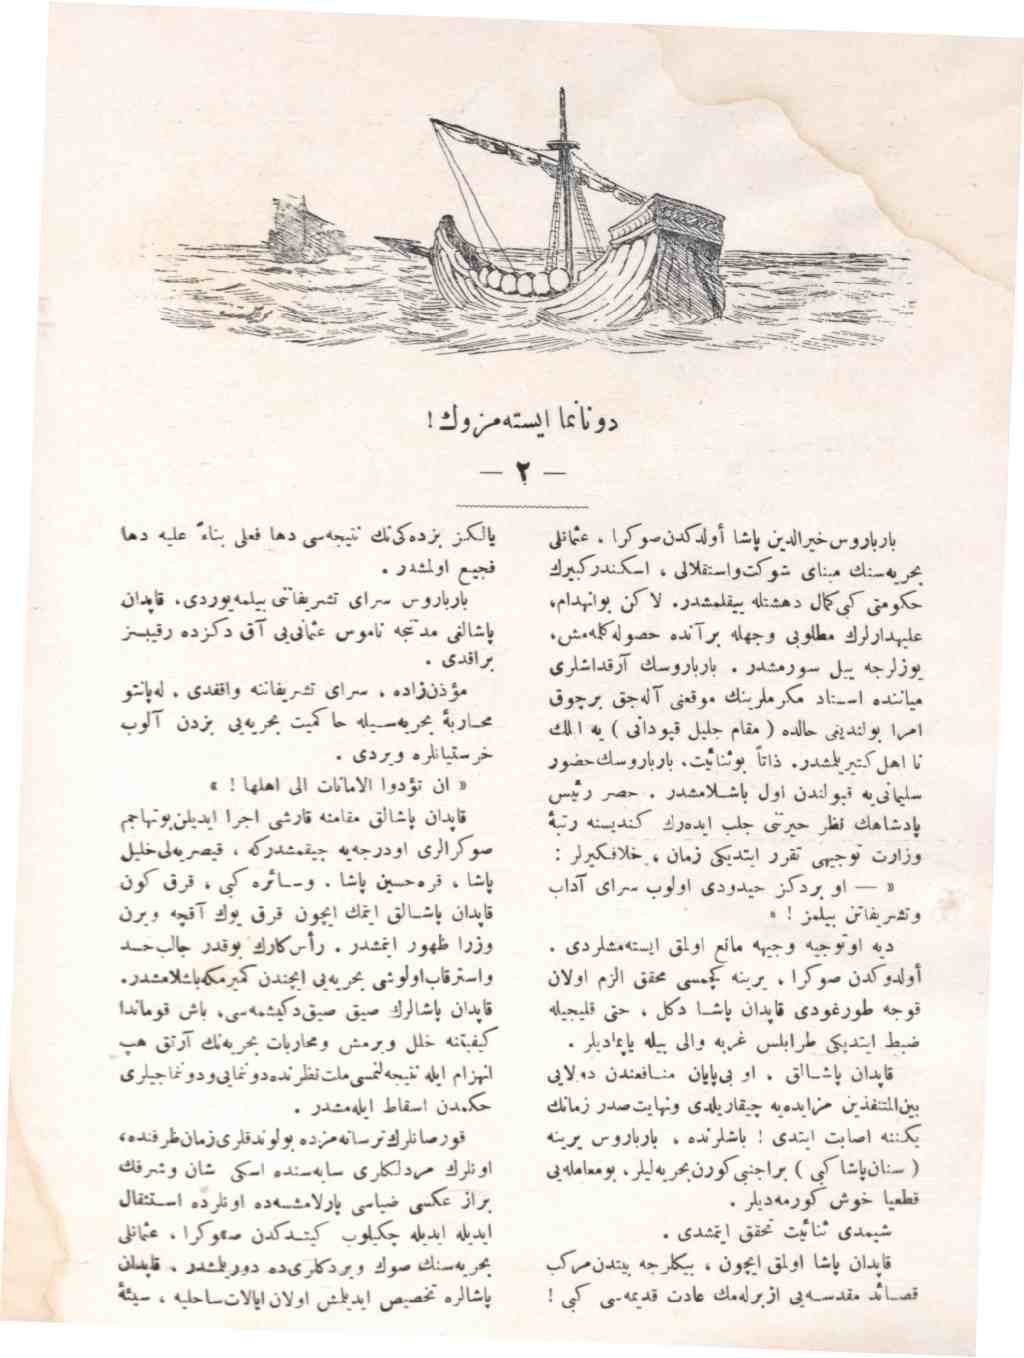 دونانما ایسته‌مزوك !
— ۲ —
بارباروس خیرالدین پاشا أولدكدن صوكرا ، عثمانلی
بحریه‌سنك مبنای شوكت واستقلالی ، اسكندر كبیرك
حكومتی كبی كمال دهشتله ییقلمشدر. لاكن بوانهدام،
علیهدارلرك مطلوبی وجهله برآنده حصوله كله‌مش،
یوزلرجه ییل سورمشدر . بارباروسك آرقداشلری
میاننده اسـتاد مكرملرینك موقعنی آله‌جق برچوق
امرا بولندیغی حالده ( مقام جلیل قپودانی ) یه اك
نا اهل كتیریلمشدر. ذاتاً بوثنائیت، بارباروسك حضور
سلیمانی‌یه قبولندن اول باشـلامشدر . حصر رئیس
پادشاهك نظر حیرتنی جلب ایده‌رك كندیسنه رتبۀ
وزارت توجیهی تقرر ایتدیكی زمان ، خلافكیرلر :
« — او بردكز حیدودی اولوب سرای آداب
وتشریفاتن بیلمز ! »
دیه اوتوجیه وجیهه مانع اولمق ایسته‌مشلردی .
أولدوكدن صوكرا ، یرینه كچمسی محقق الزم اولان
قوجه طورغودی قاپدان پاشـا دكل ، حتی قلیجیله
ضبط ایتدیكی طرابلس غربه والی بیله یاپمادیلر .
قاپدان پاشـالق . او بی‌پایان منـافعندن دولایی
بین‌المتنفذین مزایده‌یه چیقاریلدی ونهایت صدر زمانك
یكننه اصابت ایتدی ! باشلرنده ، بارباروس یرینه
( سنان پاشا كبی ) براجنبی كورن بحریه‌لیلر، بومعامله‌یی
قطعیا خوش كورمه‌دیلر .
شیمدی ثنائیت تحقق ایتمشدی .
قاپدان پاشا اولمق ایچون ، بیكلرجه بیتدن مركب
قصـائد مقدسـه‌یی ازبرله‌مك عادت قدیمه‌سی كبی !
یالـكز بزده‌كی‌نك نتیجه‌سی دها فعلی بناءً علیه دها
فجیع اولمشدر .
بارباروس سرای تشریفاتنی بیلمه‌یوردی، قاپدان
پاشالغی مدتنجه ناموس عثمانی‌یی آق دكزده رقیبسز
براقدی .
مؤذن‌زاده ، سرای تشریفاتنه واقفدی . له‌پانتو
محـاربۀ بحریه‌سـیله حاكمیت بحریه‌یی بزدن آلوب
خرستیانلره ویردی .
« ان تؤدوا الامانات الی اهلها ! »
قاپدان پاشالق مقامنه قارشی اجرا ایدیلن بوتهاجم
صوكرالری اودرجه‌یه چیقمشدركه ، قیصریه‌لی خلیل
پاشا ، قره‌حسین پاشا ، وسـائره كبی ، قرق كون
قاپدان پاشـالق ایتمك ایچون قرق یوك آقچه ویرن
وزرا ظهور ایتمشدر . رأس كارك بوقدر جالب حـد
واسترقاب اولوشی بحریه‌یی ایچندن كمیرمكه باشلامشدر.
قاپدان پاشالرك صیق صیق دكیشمه‌سی، باش قوماندا
كیفیتنه خلل ویرمش ومحاربات بحریه‌نك آرتق هپ
انهزام ایله نتیجه‌لنمسی ملت نظرنده دونمایی ودونماجیلری
حكمدن اسقاط ایله‌مشدر .
قورصانلرك ترسانه‌مزده بولوندقلری زمان ظرفنده،
اونلرك مردلكلری سایه‌سنده اسكی شان وشرفك
براز عكسی ضیاسی پارلامشسه‌ده اونلرده اسـتثقال
ایدیله ایدیله چكیلوب كیتـدكدن صوكرا ، عثمانلی
بحریه‌سنك صوك ویردكلری‌ده دوریلمشدر . قاپدان
پاشالره تخصیص ایدیلمش اولان ایالات ساحلیه ، سیئۀ